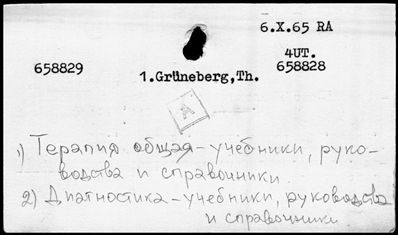 6.X.65 RA
4UT.
658829 658828
1.Grüneberg,Th.
А
1) Терапия общая - учебники, руко-
водства и справочники.
2) Диагностика - учебники, руководства
и справочники